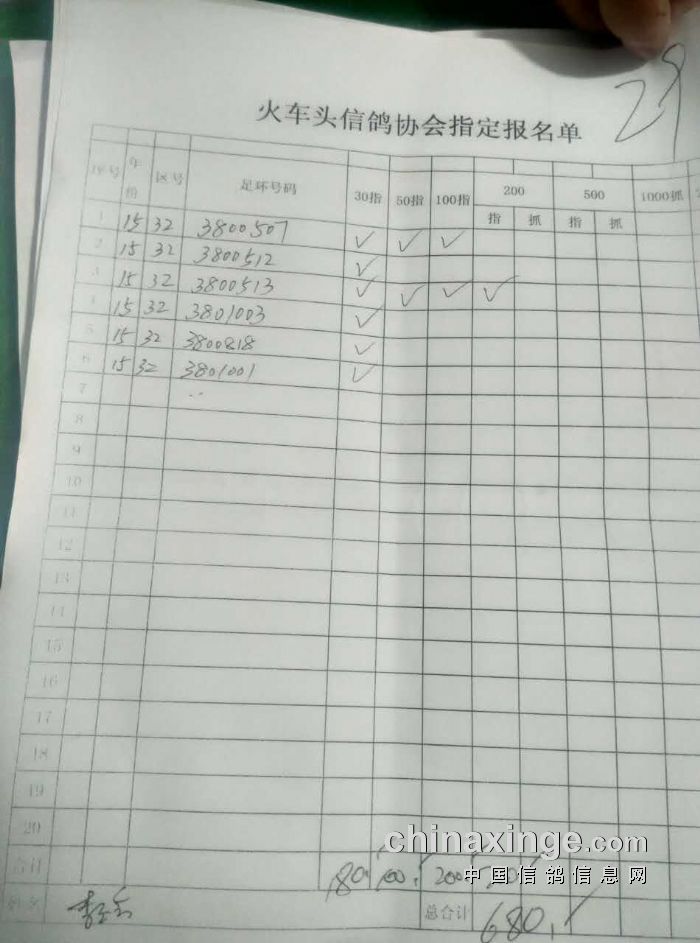 29
火车头信鸽协会指定报名单
序号 年份 区号 足环号码 30指 50指 100指 200 500 1000抓
指 抓 指 抓
1 15 32 3800507 ✓ ✓ ✓
2 15 32 3800512 ✓
3 15 32 3800513 ✓ ✓ ✓ ✓
4 15 32 3801003 ✓
5 15 32 3800818 ✓
6 15 32 3801001 ✓
7
8
9
10
11
12
13
14
15
16
17
18
19
20
合计 180. 100. 200
总合计 680.
chinaxinge.com
中国信鸽信息网